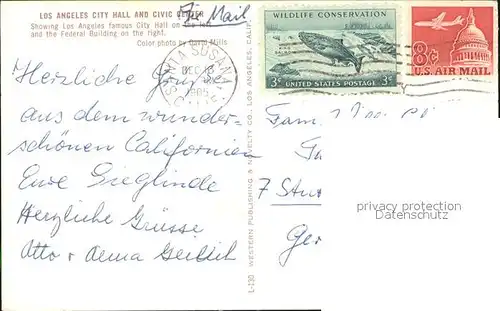 LOS ANGELES CITY HALL AND CIVIC CENTER
Showing Los Angeles famous City Hall on the left
and the Federal Building on the right.
Color photo by Mills
Air Mail
WILDLIFE CONSERVATION
KING SALMON
3¢ UNITED STATES POSTAGE 3¢
8¢
U.S. AIR MAIL
DEC
1965
Herzliche Grüsse
aus dem wunder-
schönen Californien
Eure Sieglinde
Herzliche Grüsse
Otto +
Fam.
7
Ger
L-130 WESTERN PUBLISHING & NOVELTY CO., LOS ANGELES, CALIF.
privacy protection
Datenschutz